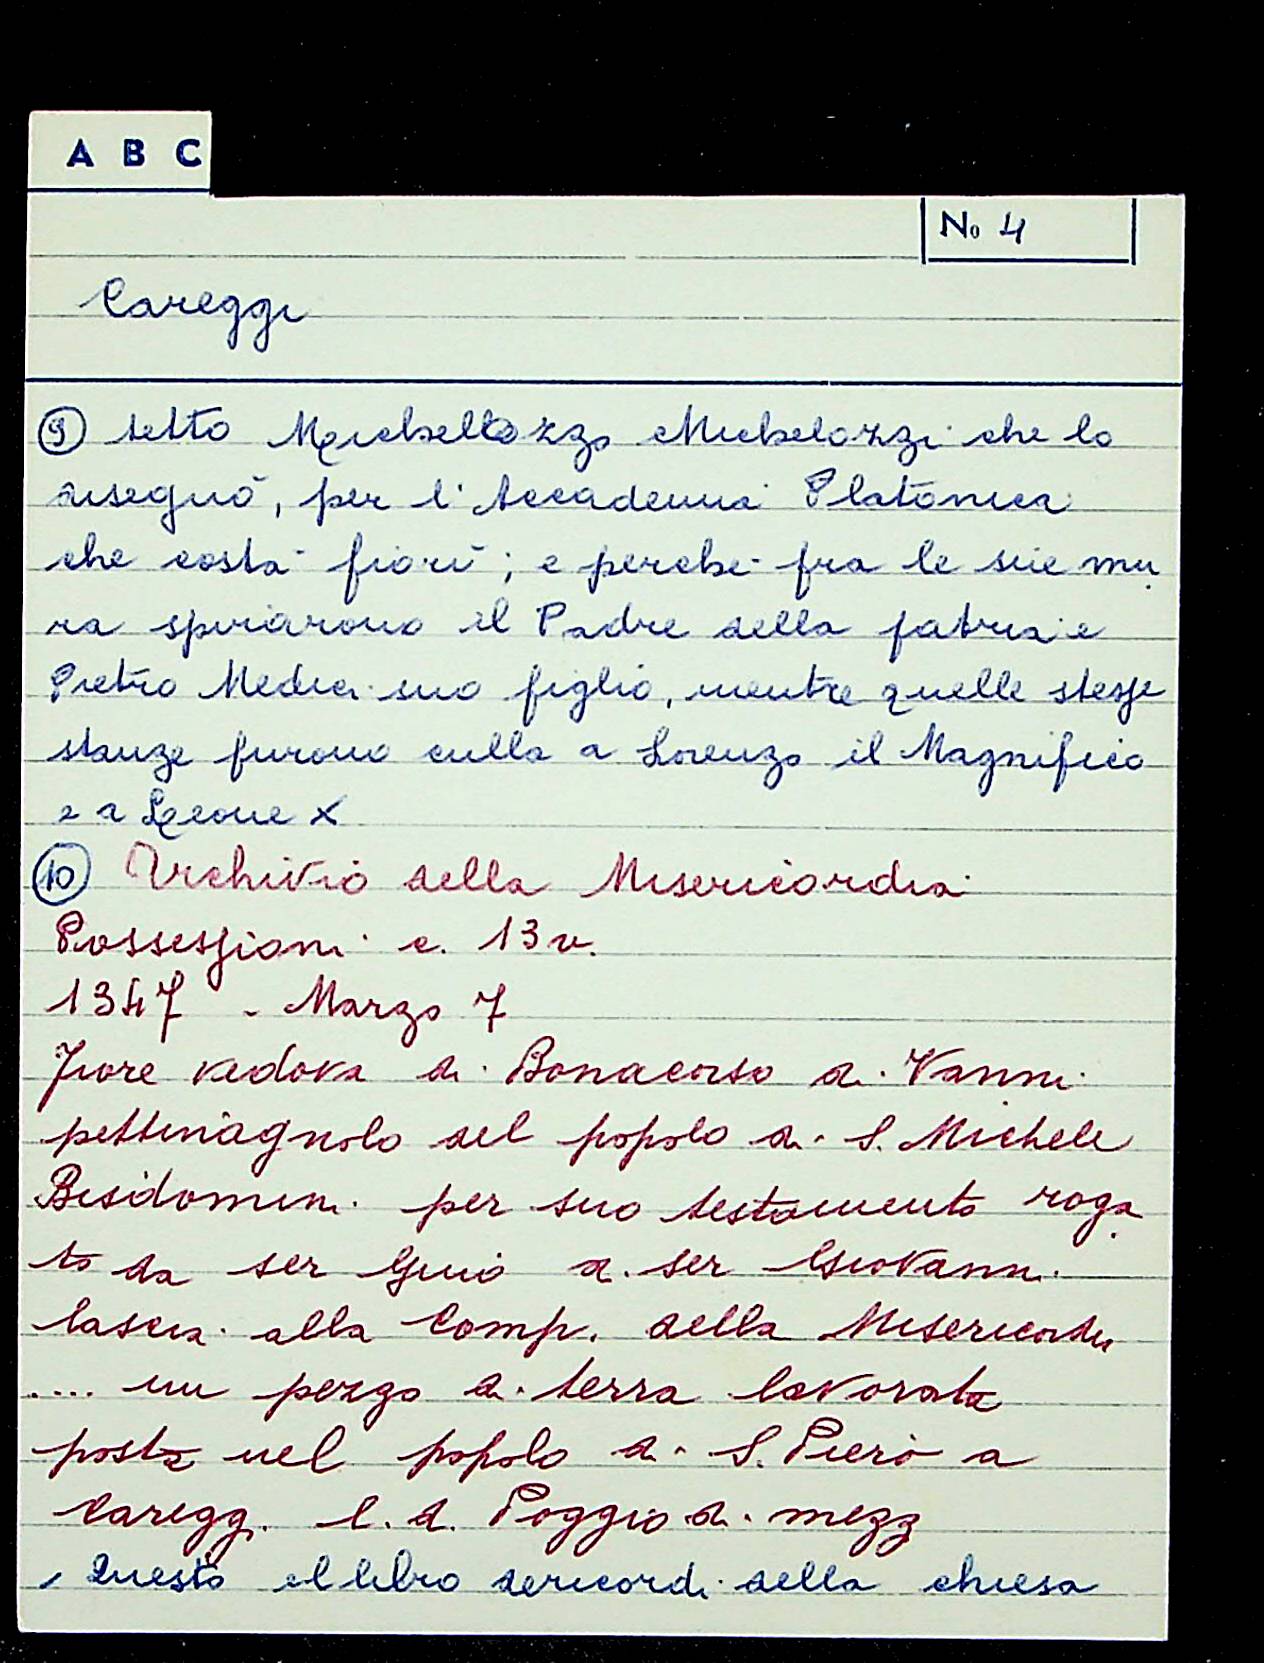 A B C
No 4
Careggi
9 tetto Michellozzo Michelozzi che lo
disegnò, per l'Accademia Platonica
che costà fiorì; e perché fra le sue mu
ra spirarono il Padre della patria e
Pietro Medici suo figlio, mentre quelle stesse
stanze furono culla a Lorenzo il Magnifico
e a Leone X
10 Archivio della Misericordia
Possessioni c. 13 v.
1347 - Marzo 7
Fiore vedova di Bonacorso di Vanni
pettinagnolo del popolo di S. Michele
Bisdomini per suo testamento roga
to da ser Guio di ser Giovanni
lascia alla Comp. della Misericordia
.... un pezzo di terra lavorata
posta nel popolo di S. Piero a
Careggi l. d. Poggio di mezz
Questo el libro dericordi della chiesa